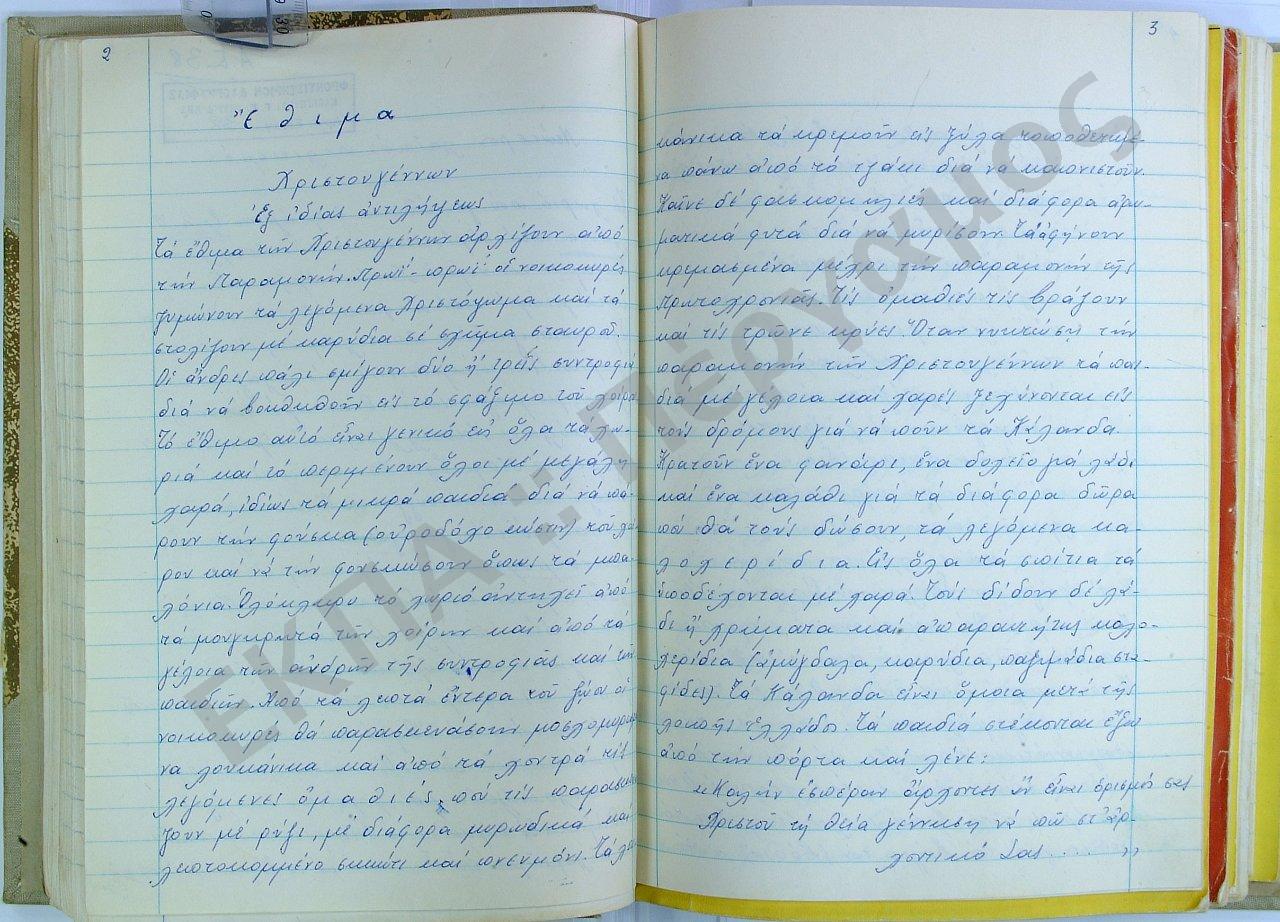 2
Ἔθιμα
Χριστουγέννων
Ἐξ ἰδίας ἀντιλήψεως
Τά ἔθιμα τῶν Χριστουγέννων ἀρχίζουν ἀπό
τήν Παραμονήν. Πρωΐ-πρωΐ οἱ νοικοκυρές
ζυμώνουν τά λεγόμενα Χριστόψωμα καί τά
στολίζουν μέ καρύδια σέ σχῆμα σταυροῦ.
Οἱ ἄνδρες πάλι σμίγουν δύο ἤ τρεῖς συντροφιά
διά νά βοηθηθοῦν εἰς τό σφάξιμο τοῦ χοίρου
Τό ἔθιμο αὐτό εἶναι γενικό εἰς ὅλα τά χω-
ριά καί τό περιμένουν ὅλοι μέ μεγάλη
χαρά, ἰδίως τά μικρά παιδιά διά νά πά-
ρουν τήν φούσκα (οὐροδόχο κύστιν) τοῦ χοί
ρου καί νά τήν φουσκώσουν ὅπως τά μπα-
λόνια. Ὁλόκληρο τό χωριό ἀντηχεῖ ἀπό
τά μουγκρητά τῶν χοίρων καί ἀπό τά
γέλοια τῶν ἀνδρῶν τῆς συντροφιᾶς καί τῶν
παιδιῶν. Ἀπό τά λεπτά ἔντερα τοῦ ζώου οἱ
νοικοκυρές θά παρασκευάσουν μοσχομυρισμέ
να λουκάνικα καί ἀπό τά χοντρά τίς
λεγόμενες ὀμαθιές, πού τίς παρασκευά
ζουν μέ ρύζι, μέ διάφορα μυρωδικά καί
λεπτοκομμένο συκώτι καί πνευμόνι. Τά λου
3
κάνικα τά κρεμοῦν εἰς ξύλα τοποθετημέ-
να πάνω ἀπό τό τζάκι διά νά καπνιστοῦν.
Καῖνε δέ φασκομηλιές καί διάφορα ἀρω-
ματικά φυτά διά νά μυρίσουν. Τά ἀφήνουν
κρεμασμένα μέχρι τήν παραμονήν τῆς
Πρωτοχρονιᾶς. Τίς ὀμαθιές τίς βράζουν
καί τίς τρῶνε κρύες. Ὅταν νυκτώσῃ τήν
παραμονήν τῶν Χριστουγέννων τά παι-
διά μέ γέλοια καί χαρές ξεχύνονται εἰς
τούς δρόμους γιά νά ποῦν τά Κάλανδα.
Κρατοῦν ἕνα φανάρι, ἕνα δοχεῖο γιά λάδι
καί ἕνα καλάθι γιά τά διάφορα δῶρα
πού θά τούς δώσουν, τά λεγόμενα κα-
λοχερίδια. Εἰς ὅλα τά σπίτια τά
ὑποδέχονται μέ χαρά. Τούς δίδουν δέ λά-
δι ἤ χρήματα καί ἀπαραιτήτως καλο-
χερίδια (ἀμύγδαλα, καρύδια, παξιμάδια στα-
φίδες). Τά Κάλανδα εἶναι ὅμοια μετά τῆς
λοιπῆς Ἑλλάδος. Τά παιδιά στέκονται ἔξω
ἀπό τήν πόρτα καί λένε:
«Καλήν ἑσπέραν ἄρχοντες ἄν εἶναι ὁρισμός σας
Χριστοῦ τή θεία γέννηση νά πῶ στ' ἀρ-
χοντικό σας.... »
ΕΚΠΑ :: Πέργαμος